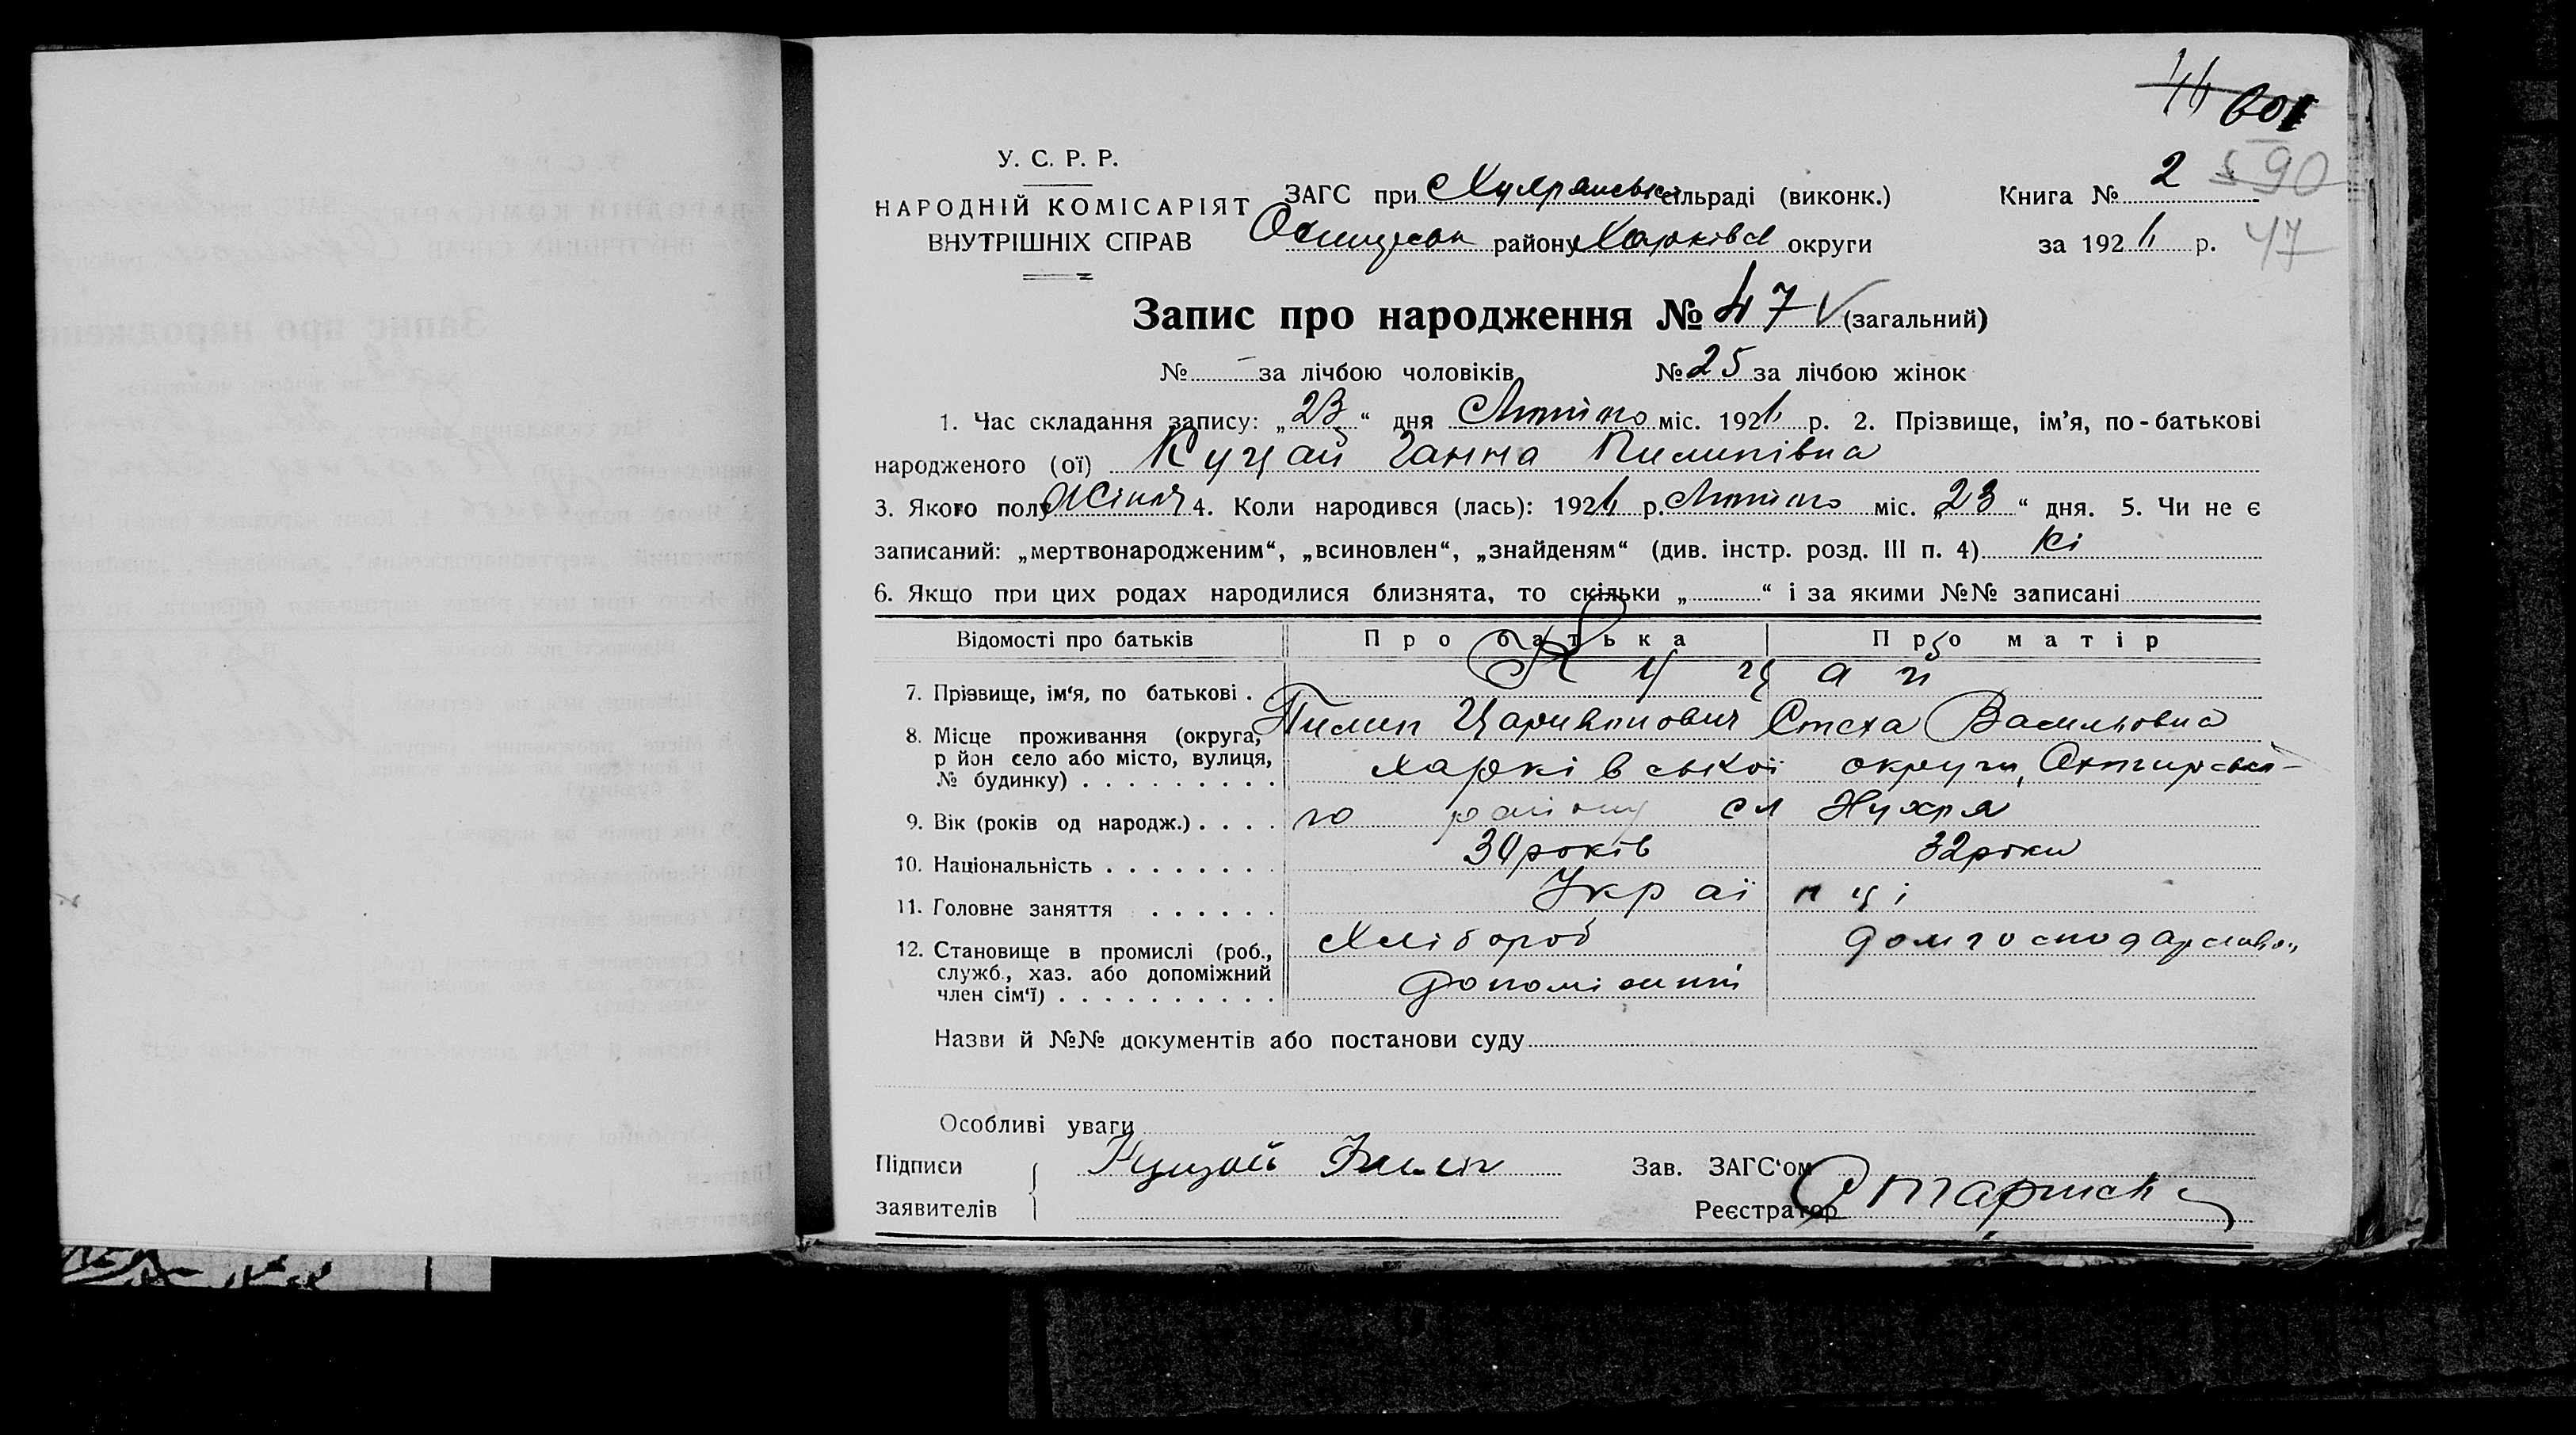 601
У. С. Р. Р.
НАРОДНІЙ КОМІСАРІЯТ
ВНУТРІШНІХ СПРАВ
ЗАГС при сільраді (виконк.)
району Харківс округи
Книга № 2
590
за 192 р.
47
Запис про народження № 47 (загальний)
№ – за лічбою чоловіків № 25 за лічбою жінок
1. Час складання запису: „23“ дня міс. 192 р. 2. Прізвище, ім’я, по-батькові
народженого (ої) Куцай Ганна Пилипівна
3. Якого полу Жіноч 4. Коли народився (лась): 192 р. міс. „23“ дня. 5. Чи не є
записаний: „мертвонародженим“, „всиновлен“, „знайденям“ (див. інстр. розд. III п. 4) Ні
6. Якщо при цих родах народилися близнята, то скільки „ “ і за якими №№ записані
Відомості про батьків Про батька Про матір
7. Прізвище, ім‘я, по батькові . . Куцай
Пилип Стеха Васильовна
8. Місце проживання (округа,
р йон село або місто, вулиця,
№ будинку) . . . . . . . . . Харківської округи, Охтирсько-
9. Вік (років од народж.) . . . . го району сл Хухря
34 років 32 роки
10. Національність . . . . . . . .
Українці
11. Головне заняття . . . . . .
Хлібороб домгосподарство
12. Становище в промислі (роб.,
служб., хаз. або допоміжний
член сім‘ї) . . . . . . . . . . допоміжний
Назви й №№ документів або постанови суду
Особливі уваги
Підписи
заявителів
Куцай
Зав. ЗАГС‘ом
Реєстратор